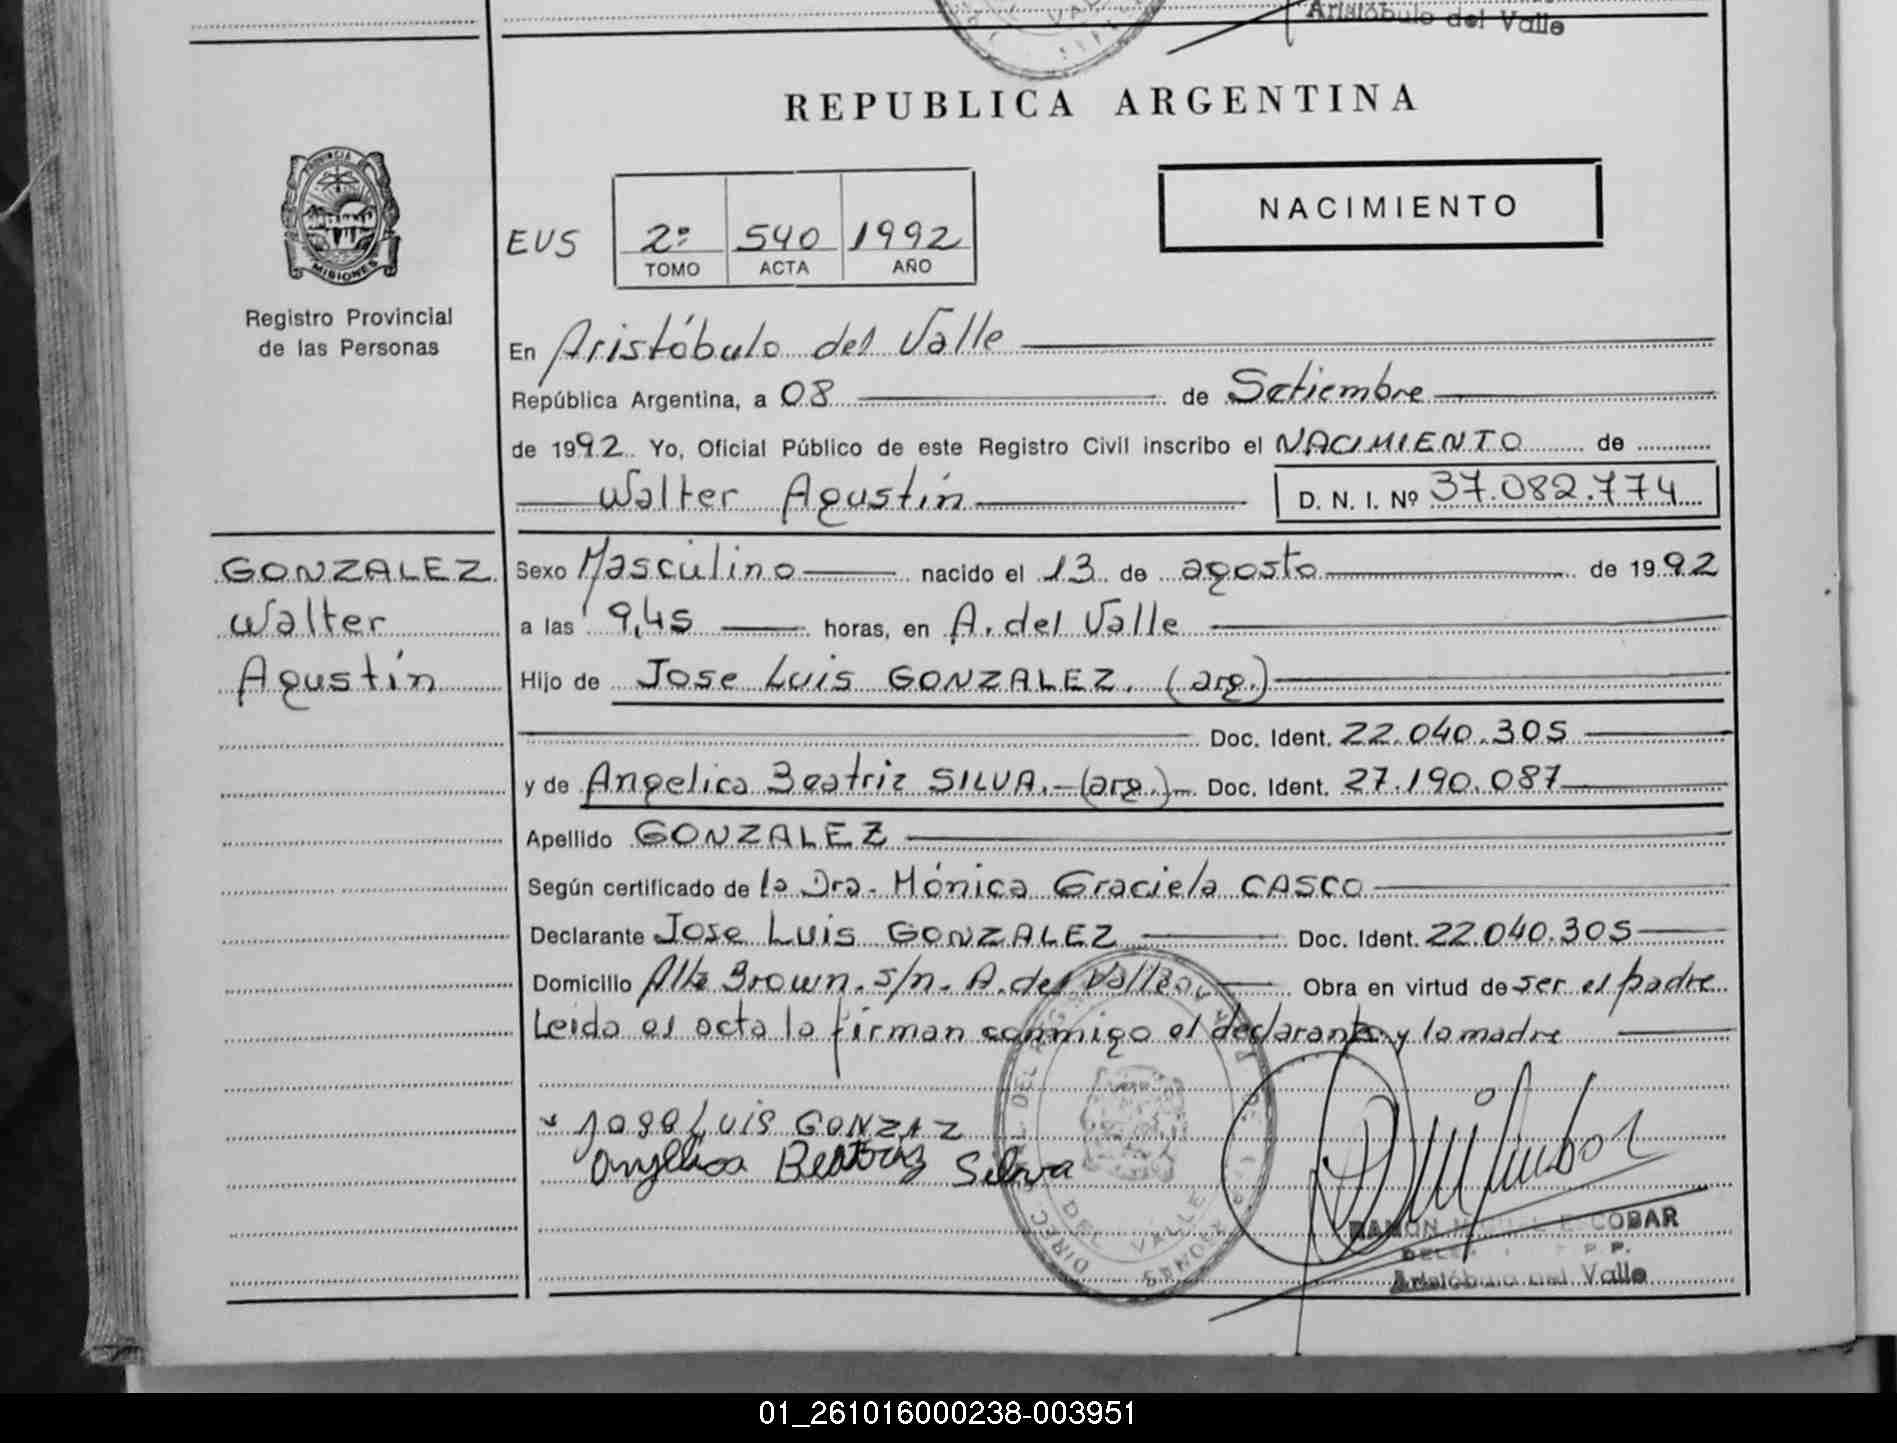 Aristóbulo del Valle
REPUBLICA ARGENTINA
PROVINCIA DE
MISIONES
Registro Provincial
de las Personas
NACIMIENTO
EUS 2º 540 1992
TOMO ACTA AÑO
En Aristóbulo del Valle
República Argentina, a 08 de Setiembre
de 1992. Yo, Oficial Público de este Registro Civil inscribo el NACIMIENTO de
Walter Agustín D. N. I. Nº 37.082.774
GONZALEZ
Walter
Agustín
Sexo Masculino nacido el 13 de agosto de 1992
a las 9,45 horas, en A. del Valle
Hijo de Jose Luis GONZALEZ. (arg.)
Doc. Ident. 22.040.305
y de Angelica Beatriz SILVA.-(arg.)- Doc. Ident. 27.190.087
Apellido GONZALEZ
Según certificado de la Dra. Mónica Graciela CASCO
Declarante Jose Luis GONZALEZ Doc. Ident. 22.040.305
Domicilio Alte Brown. s/n. A. del Valle Obra en virtud de ser el padre
Leida el acta la firman conmigo el declarante y la madre
Jose Luis GONZAZ
Angelica Beatriz Silva
DEL VALLE
MISIONES
RAMON MIGUEL ESCOBAR
Aristóbulo del Valle
01_261016000238-003951